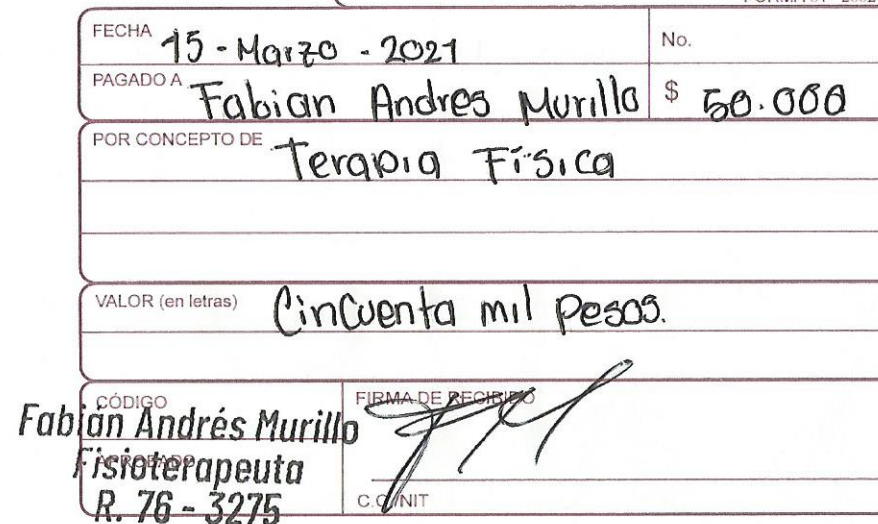 FECHA 15 - Marzo - 2021 No.
PAGADO A Fabian Andres Murillo $ 50.000
POR CONCEPTO DE Terapia Física
VALOR (en letras) Cincuenta mil pesos.
CÓDIGO FIRMA DE RECIBIDO
Fabián Andrés Murillo
APROBADO
Fisioterapeuta
R. 76 - 3275 C.C./NIT